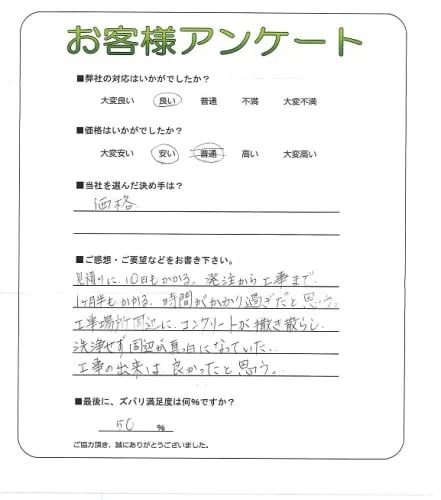 お客様アンケート
■弊社の対応はいかがでしたか?
大変良い 良い 普通 不満 大変不満
■価格はいかがでしたか?
大変安い 安い 普通 高い 大変高い
■当社を選んだ決め手は?
価格
■ご感想・ご要望などをお書き下さい。
見積りに、10日もかかる、発注から工事まで、
1ヶ月半もかかる、時間がかかり過ぎだと思う。
工事場所周辺に、コンクリートが撒き散らし、
洗浄せず周辺が真っ白になっていた。
工事の出来は良かったと思う。
■最後に、ズバリ満足度は何%ですか?
50 %
ご協力頂き、誠にありがとうございました。